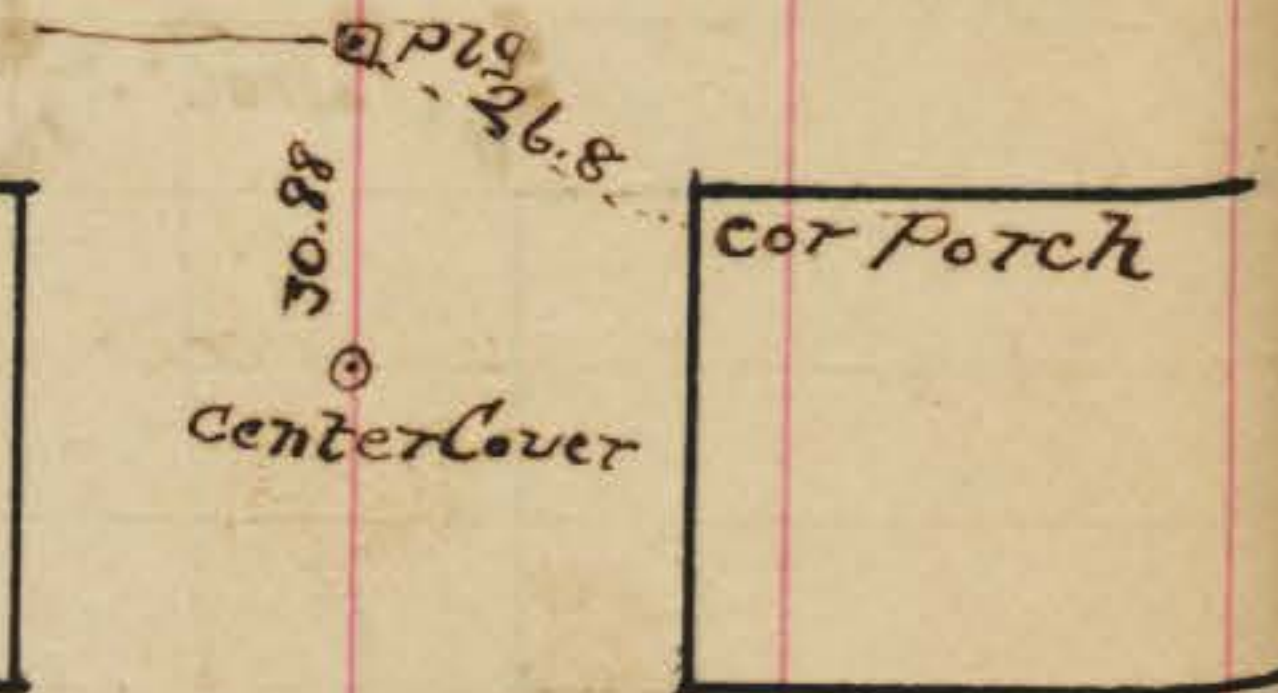 Plg
26.8
30.88
cor Porch
Center Cover